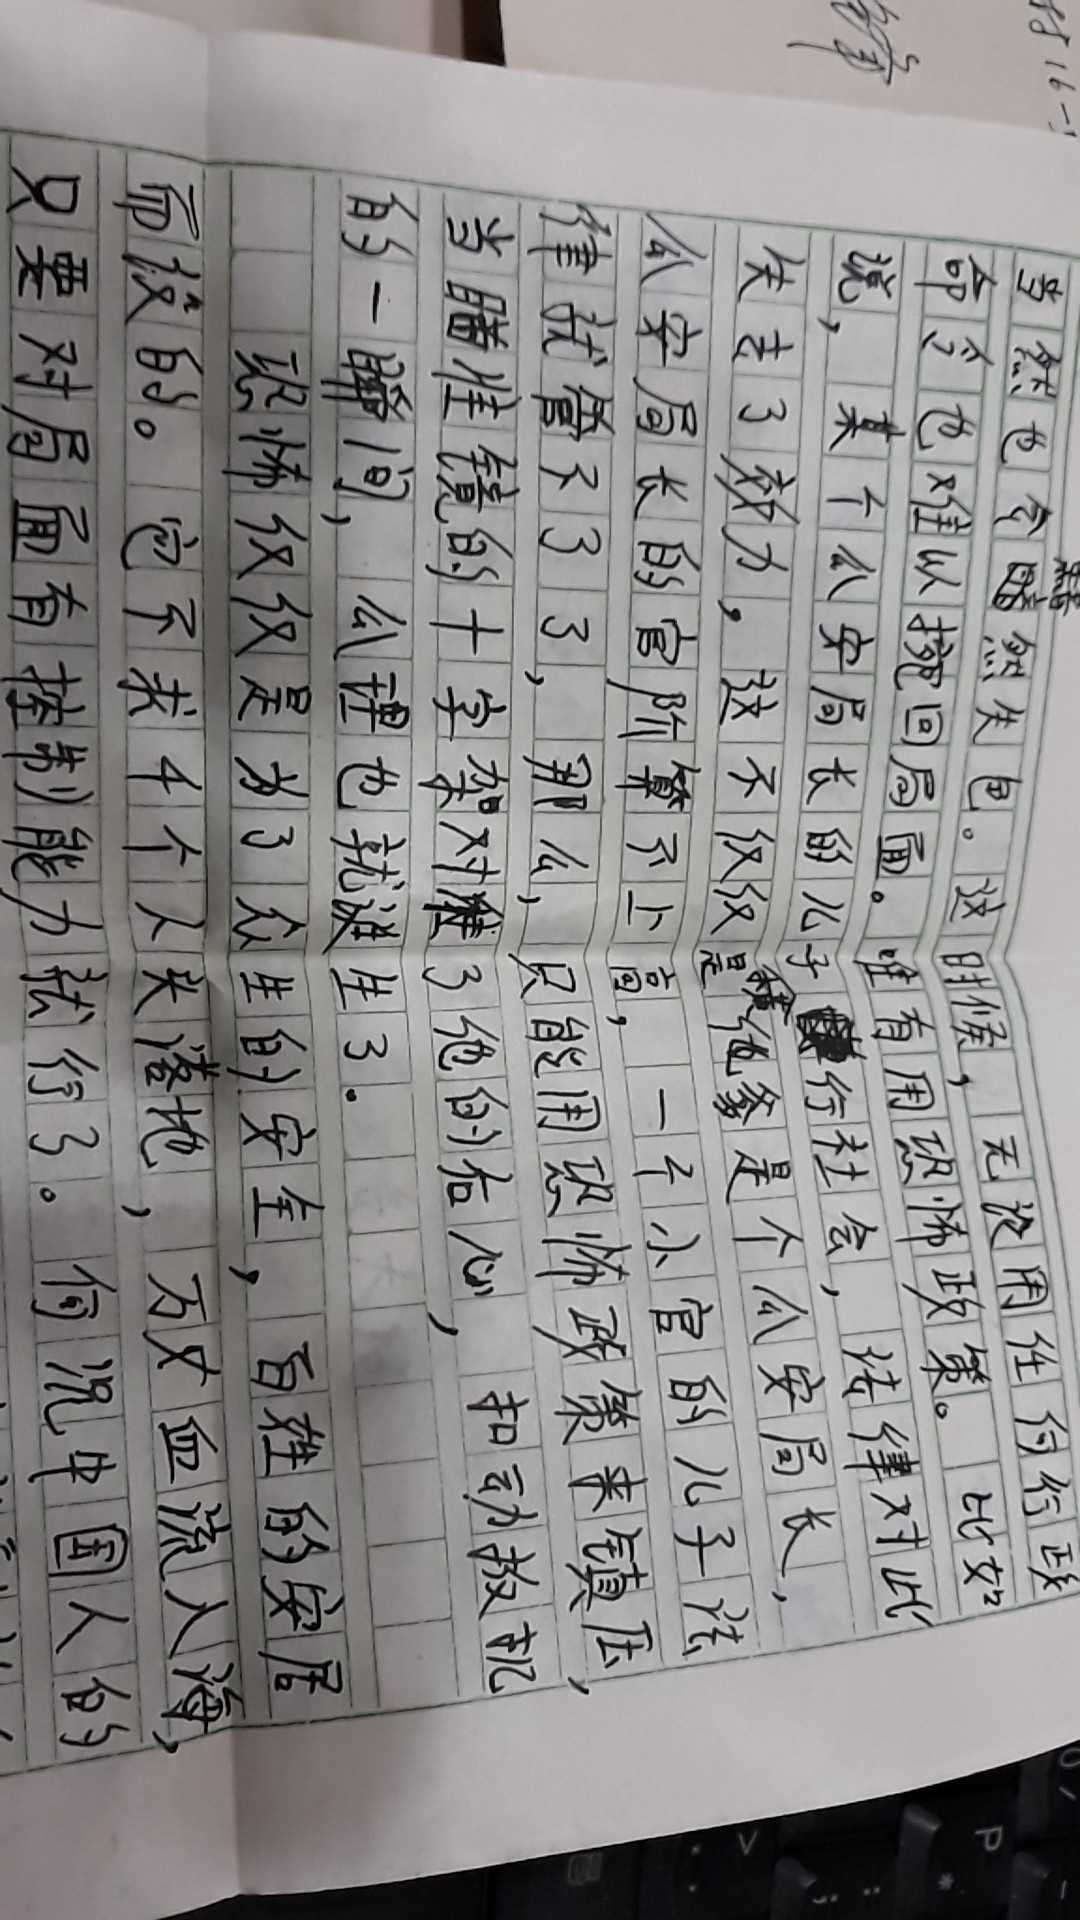 当然也会黯然失色。这时候，无没用任何行政
命令也难以挽回局面。唯有用恐怖政策。比如
说，某个公安局长的儿子横行社会，法律对此
失去了效力，这不仅仅是他爹是个公安局长，
公安局长的官阶算不上高，一个小官的儿子法
律就管不了了，那么，只能用恐怖政策来镇压，
当瞄准镜的十字架对准了他的右心，扣动扳机
的一瞬间，公理也就诞生了.
恐怖仅仅是为了众生的安全，百姓的安居
而设的。它不求4个人头落地，万丈血流入海，
只要对局面有控制能力就行了。何况中国人的